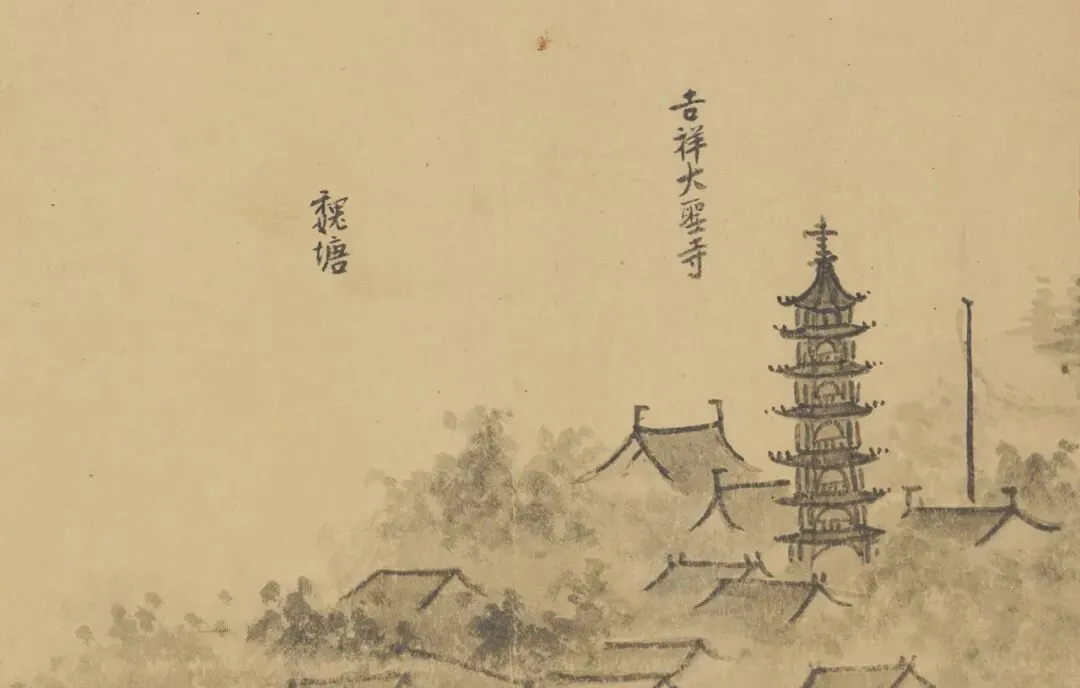 吉祥大聖寺
魏塘